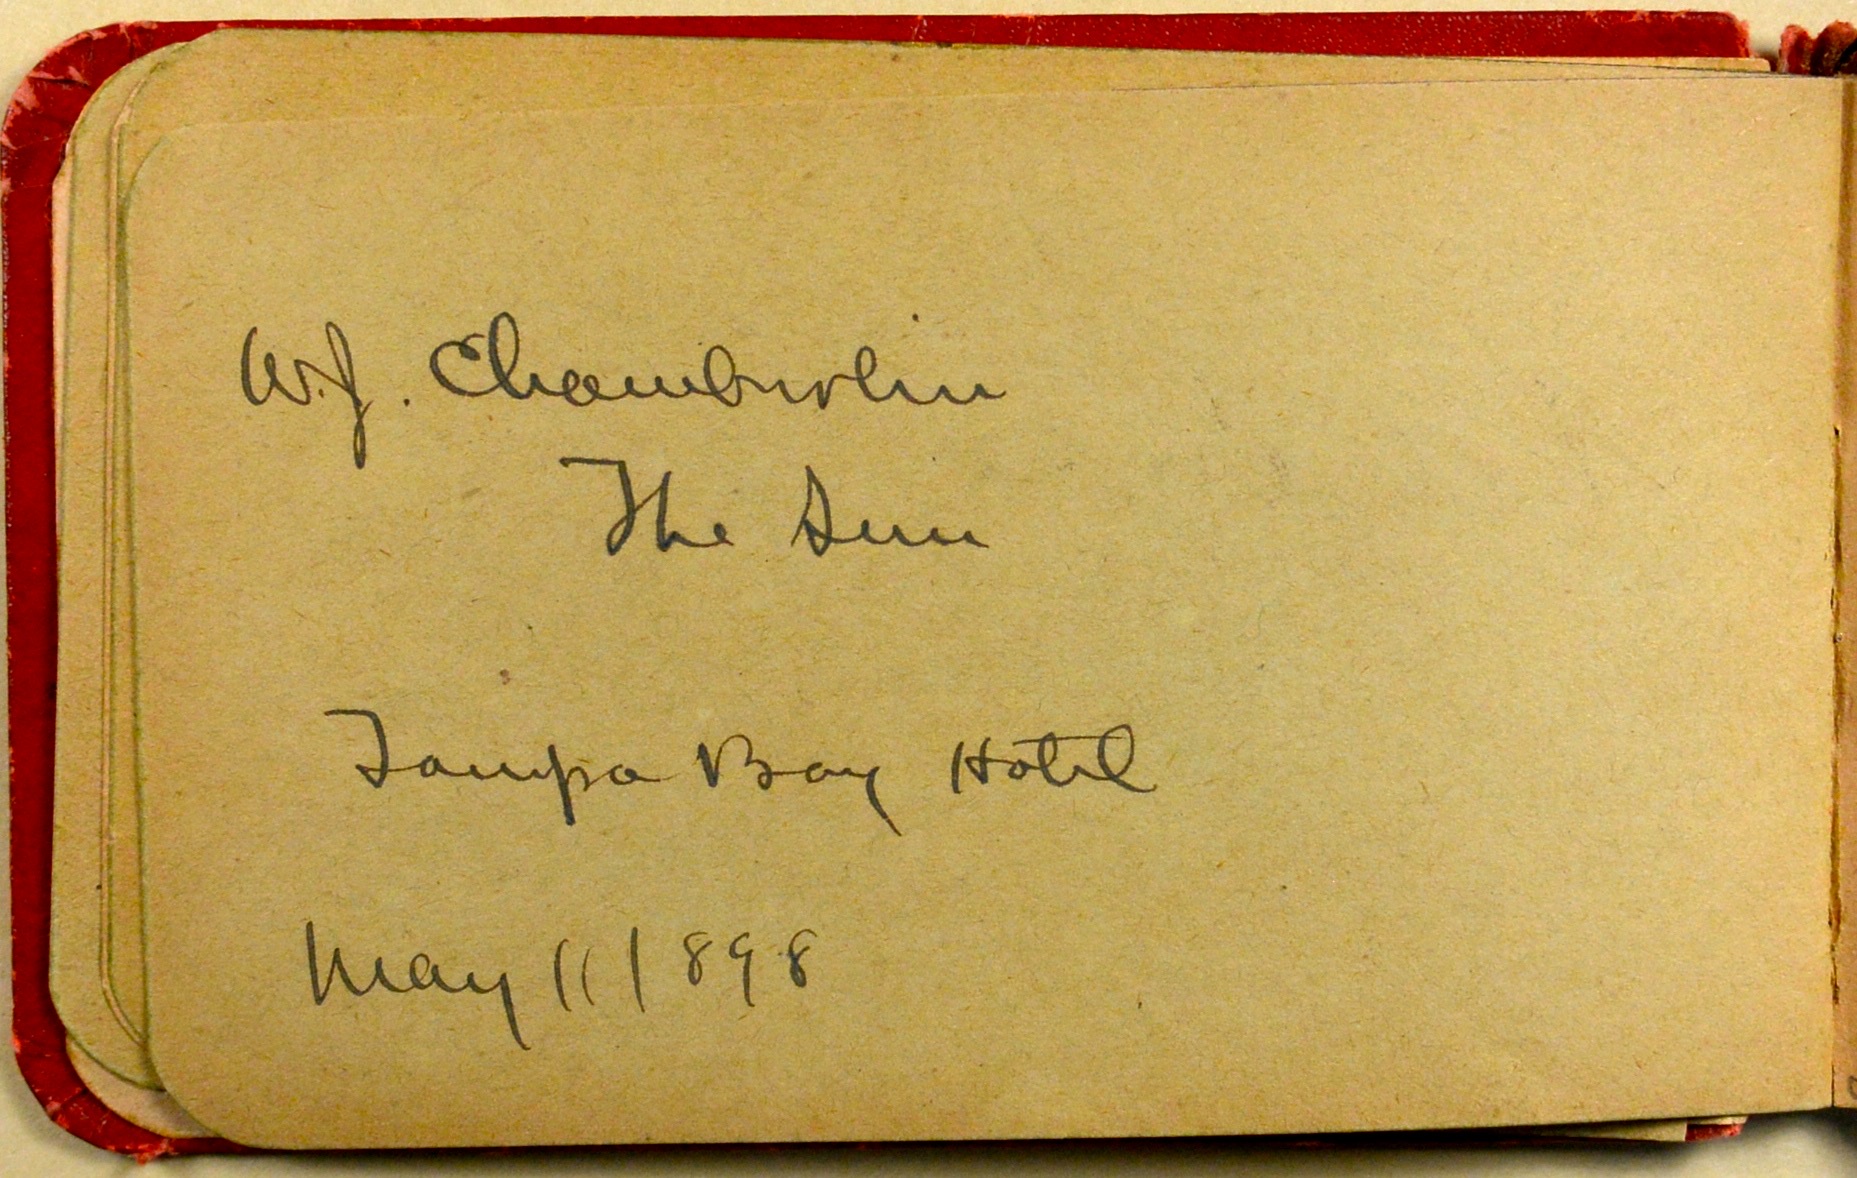 W.J. Chamberlin
The Sun
Tampa Bay Hotel
May 11 1898